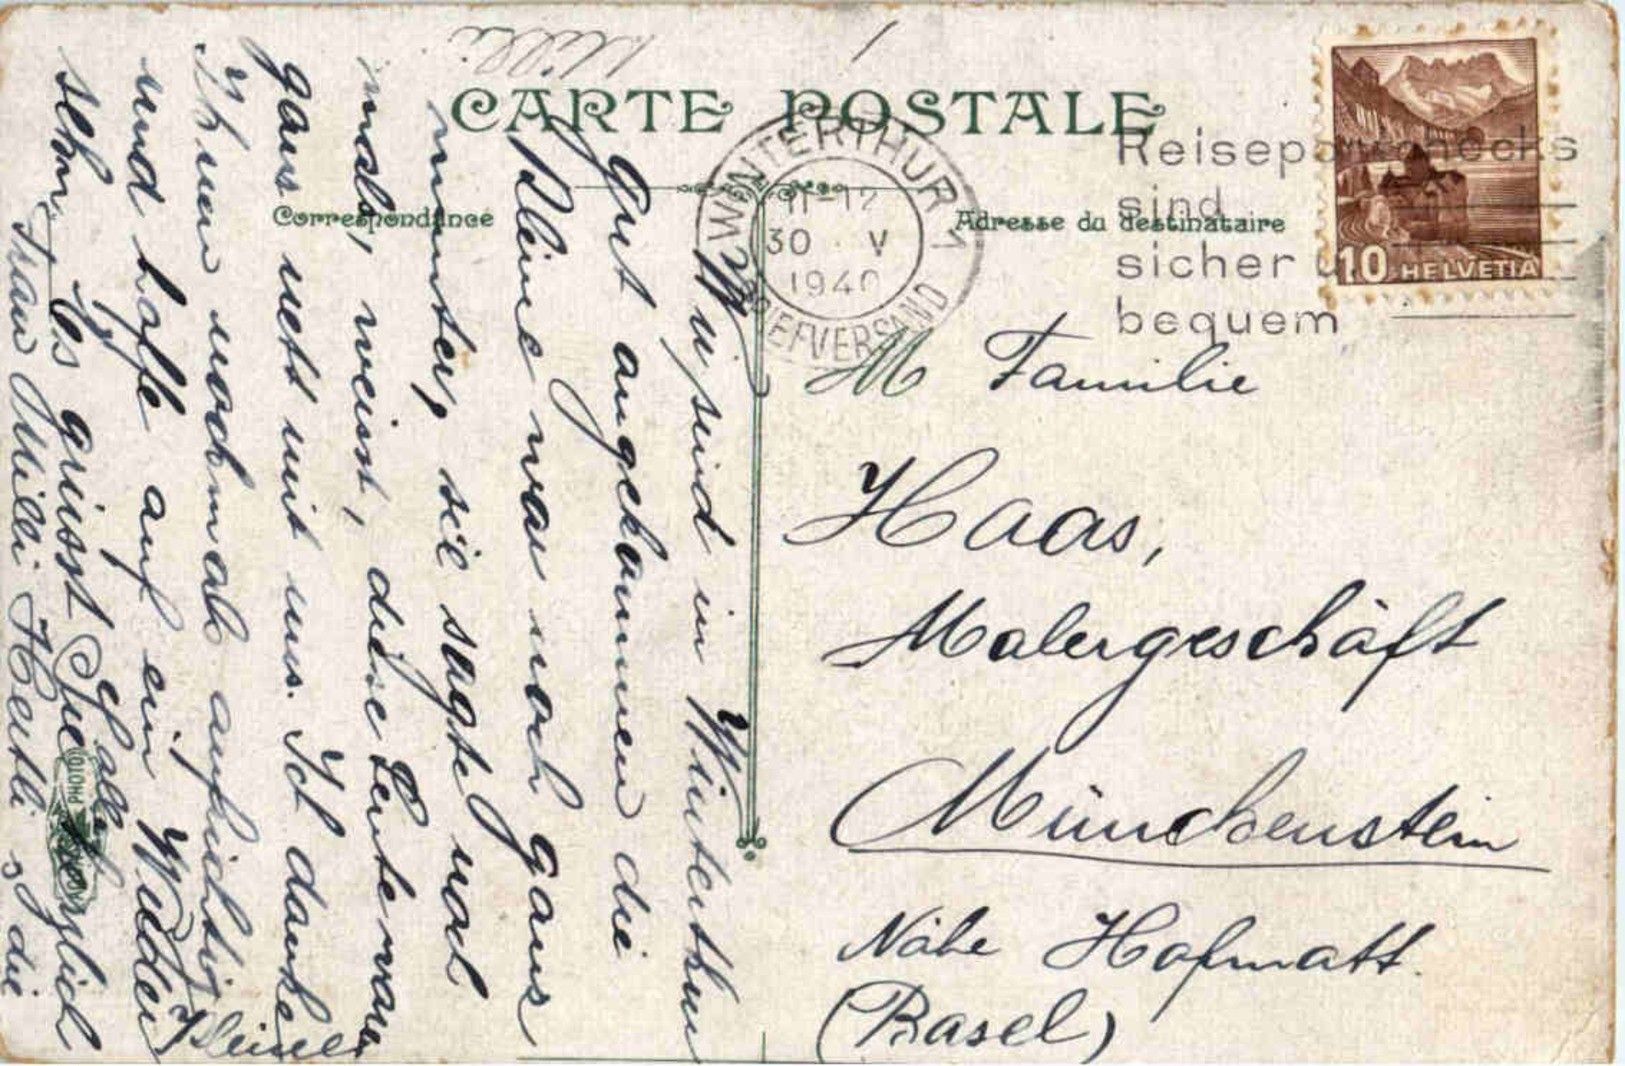 CARTE POSTALE
Correspondance
Adresse du destinataire
WINTERTHUR 1
11-12
30 V
1940
BRIEFVERSAND
Reisepostchecks
sind
sicher u
bequem
10 HELVETIA
Familie
Haas,
Malergeschäft
Münchenstein
Nähe Hofmatt
(Basel)
W, sind in Winterthur
gut angekommen die
Kleine war noch ganz
munter, sie sagte mal
mals, weist, diese Leute waren
ganz nett mit uns. Ich danke
Ihnen nochmals aufrichtig
und hoffe auf ein Wieder
sehn. Es grüsst Sie herzlich
Frau Milli Hertli &amp; die
Kleine
Milli
PHOTO